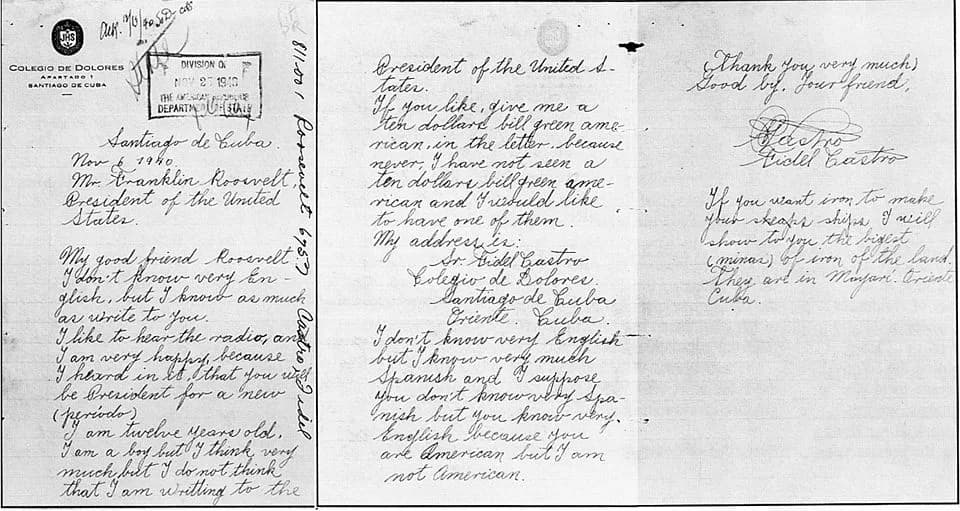 JHS
COLEGIO DE DOLORES
APARTADO 1
SANTIAGO DE CUBA
DIVISION OF
NOV 25 1940
THE AMERICAN REPUBLICS
DEPARTMENT OF STATE
Santiago de Cuba.
Nov 6 1940.
Mr. Franklin Roosvelt,
President of the United
States.
My good friend Roosvelt
I don't know very En-
glish, but I know as much
as write to you.
I like to hear the radio, and
I am very happy, because
I heard in it, that you will
be President for a new
(período)
I am twelve years old.
I am a boy but I think very
much but I do not think
that I am writting to the
811.001 Roosevelt 6957 Castro, Fidel
President of the United S-
tates.
If you like, give me a
ten dollars bill green ame-
rican, in the letter, because
never, I have not seen a
ten dollars bill green ame-
rican and I would like
to have one of them.
My address is:
Sr. Fidel Castro
Colegio de Dolores.
Santiago de Cuba
Oriente. Cuba.
I don't know very English
but I know very much
Spanish and I suppose
you don't know very Spa-
nish but you know very
English because you
are American but I am
not American.
(Thank you very much)
Good by. Your friend,
Castro
Fidel Castro
If you want iron to make
your sheaps ships I will
show to you the bigest
(minas) of iron of the land.
They are in Mayarí. Oriente
Cuba.